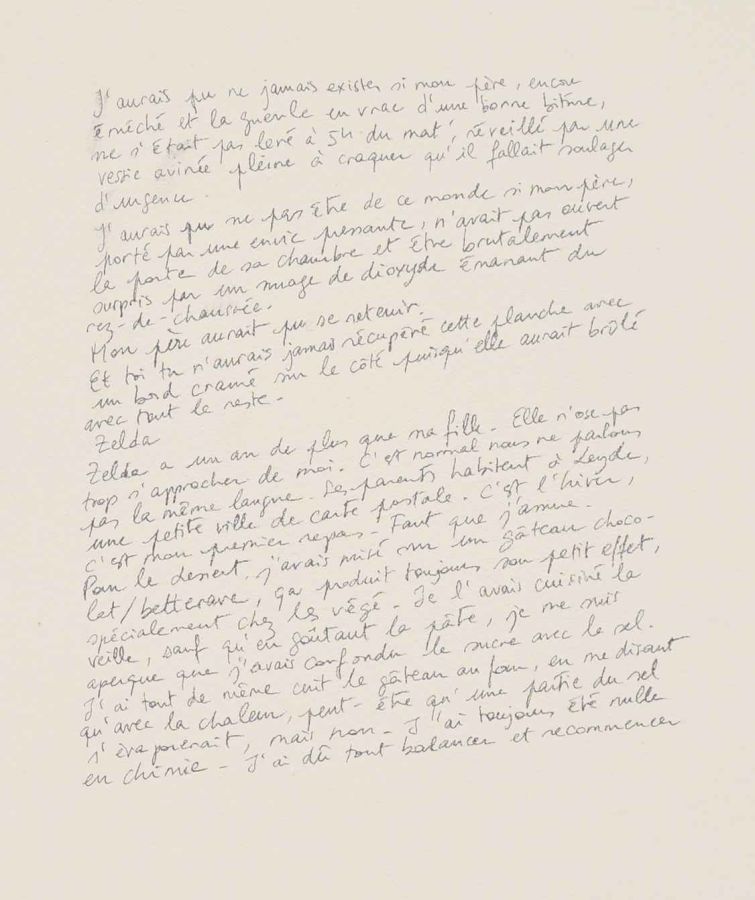 J'aurais pu ne jamais exister si mon père, encore
éméché et la gueule en vrac d'une bonne biture,
ne s'était pas levé à 5h du mat', réveillé par une
vessie avinée pleine à craquer qu'il fallait soulager
d'urgence.
J'aurais pu ne pas être de ce monde si mon père,
porté par une envie pressante, n'avait pas ouvert
la porte de sa chambre et être brutalement
surpris par un nuage de dioxyde émanant du
rez-de-chaussée.
Mon père aurait pu se retenir.
Et toi tu n'aurais jamais récupéré cette planche avec
un bord cramé sur le côté puisqu'elle aurait brûlé
avec tout le reste.
Zelda
Zelda a un an de plus que ma fille. Elle n'ose pas
trop s'approcher de moi. C'est normal nous ne parlons
pas la même langue. Ses parents habitent à Leyde,
une petite ville de carte postale. C'est l'hiver,
c'est mon premier repas. Faut que j'assure.
Pour le dessert, j'avais misé sur un gâteau choco-
lat/betterave, ça produit toujours son petit effet,
spécialement chez les végé. Je l'avais cuisiné la
veille, sauf qu'en goûtant la pâte, je me suis
aperçue que j'avais confondu le sucre avec le sel.
J'ai tout de même cuit le gâteau au four, en me disant
qu'avec la chaleur, peut-être qu'une partie du sel
s'évaporerait, mais non. J'ai toujours été nulle
en chimie. J'ai dû tout balancer et recommencer